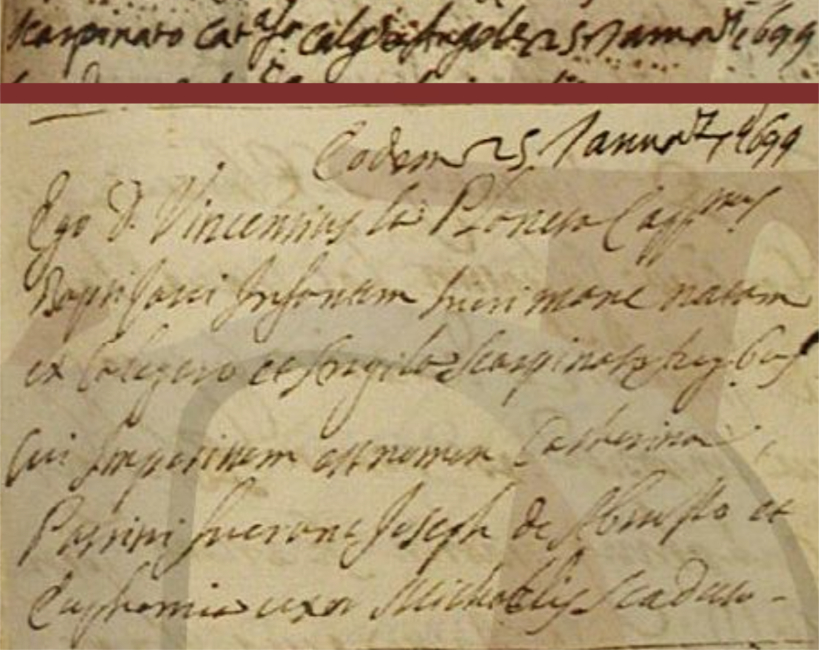 Scarpinato Cat.a f. Calog.o et Angele 25 Januarii 1699
Eodem 25 Januarii 1699
Ego D. Vincentius la Planeta Capp.nus
Baptizavi Infantem heri mane natam
ex Calogero et Angila Scarpinato jug.bus
Cui Impositum est nomen Catherina,
Patrini fuerunt Joseph de
et
Euphemia uxor Michaelis Scaduto -